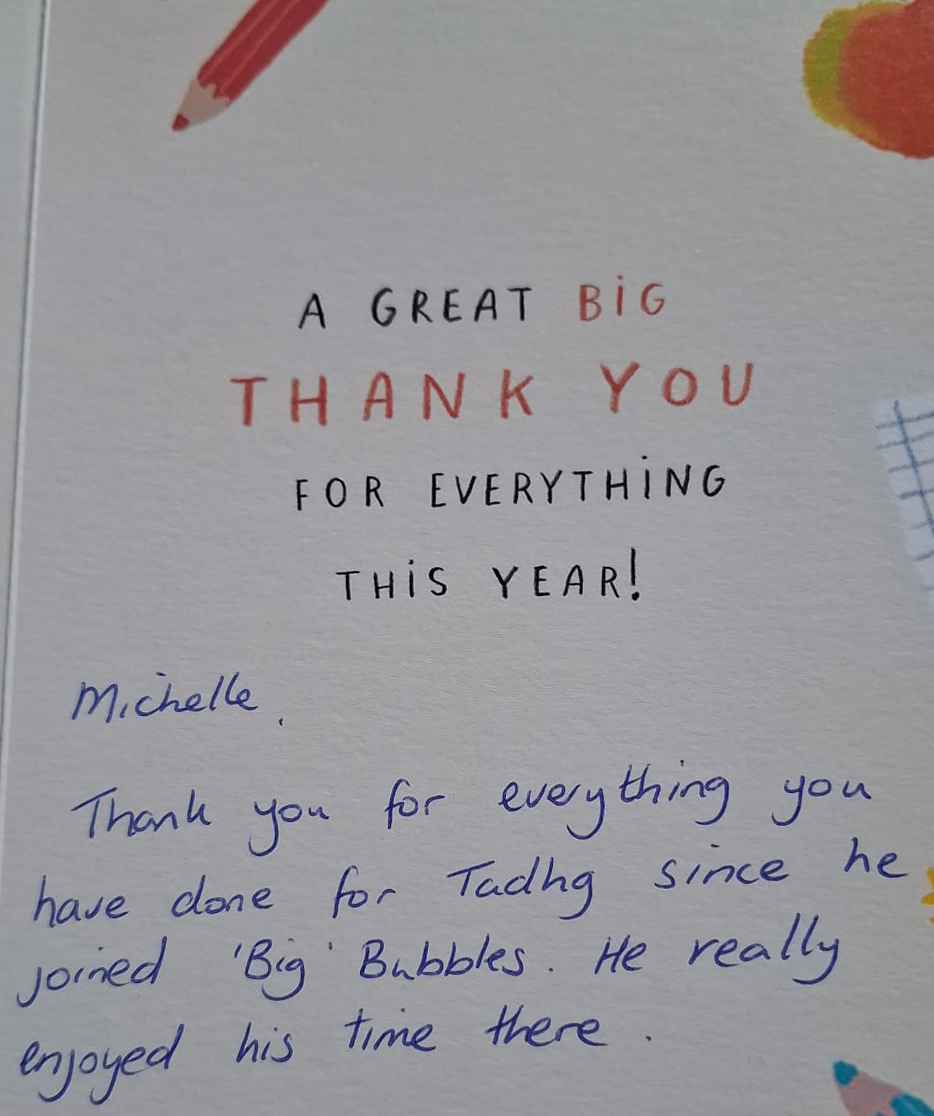 A GREAT BiG
THANK YOU
FOR EVERYTHiNG
THiS YEAR!
Michelle,
Thank you for everything you
have done for Tadhg since he
joined 'Big' Bubbles. He really
enjoyed his time there.